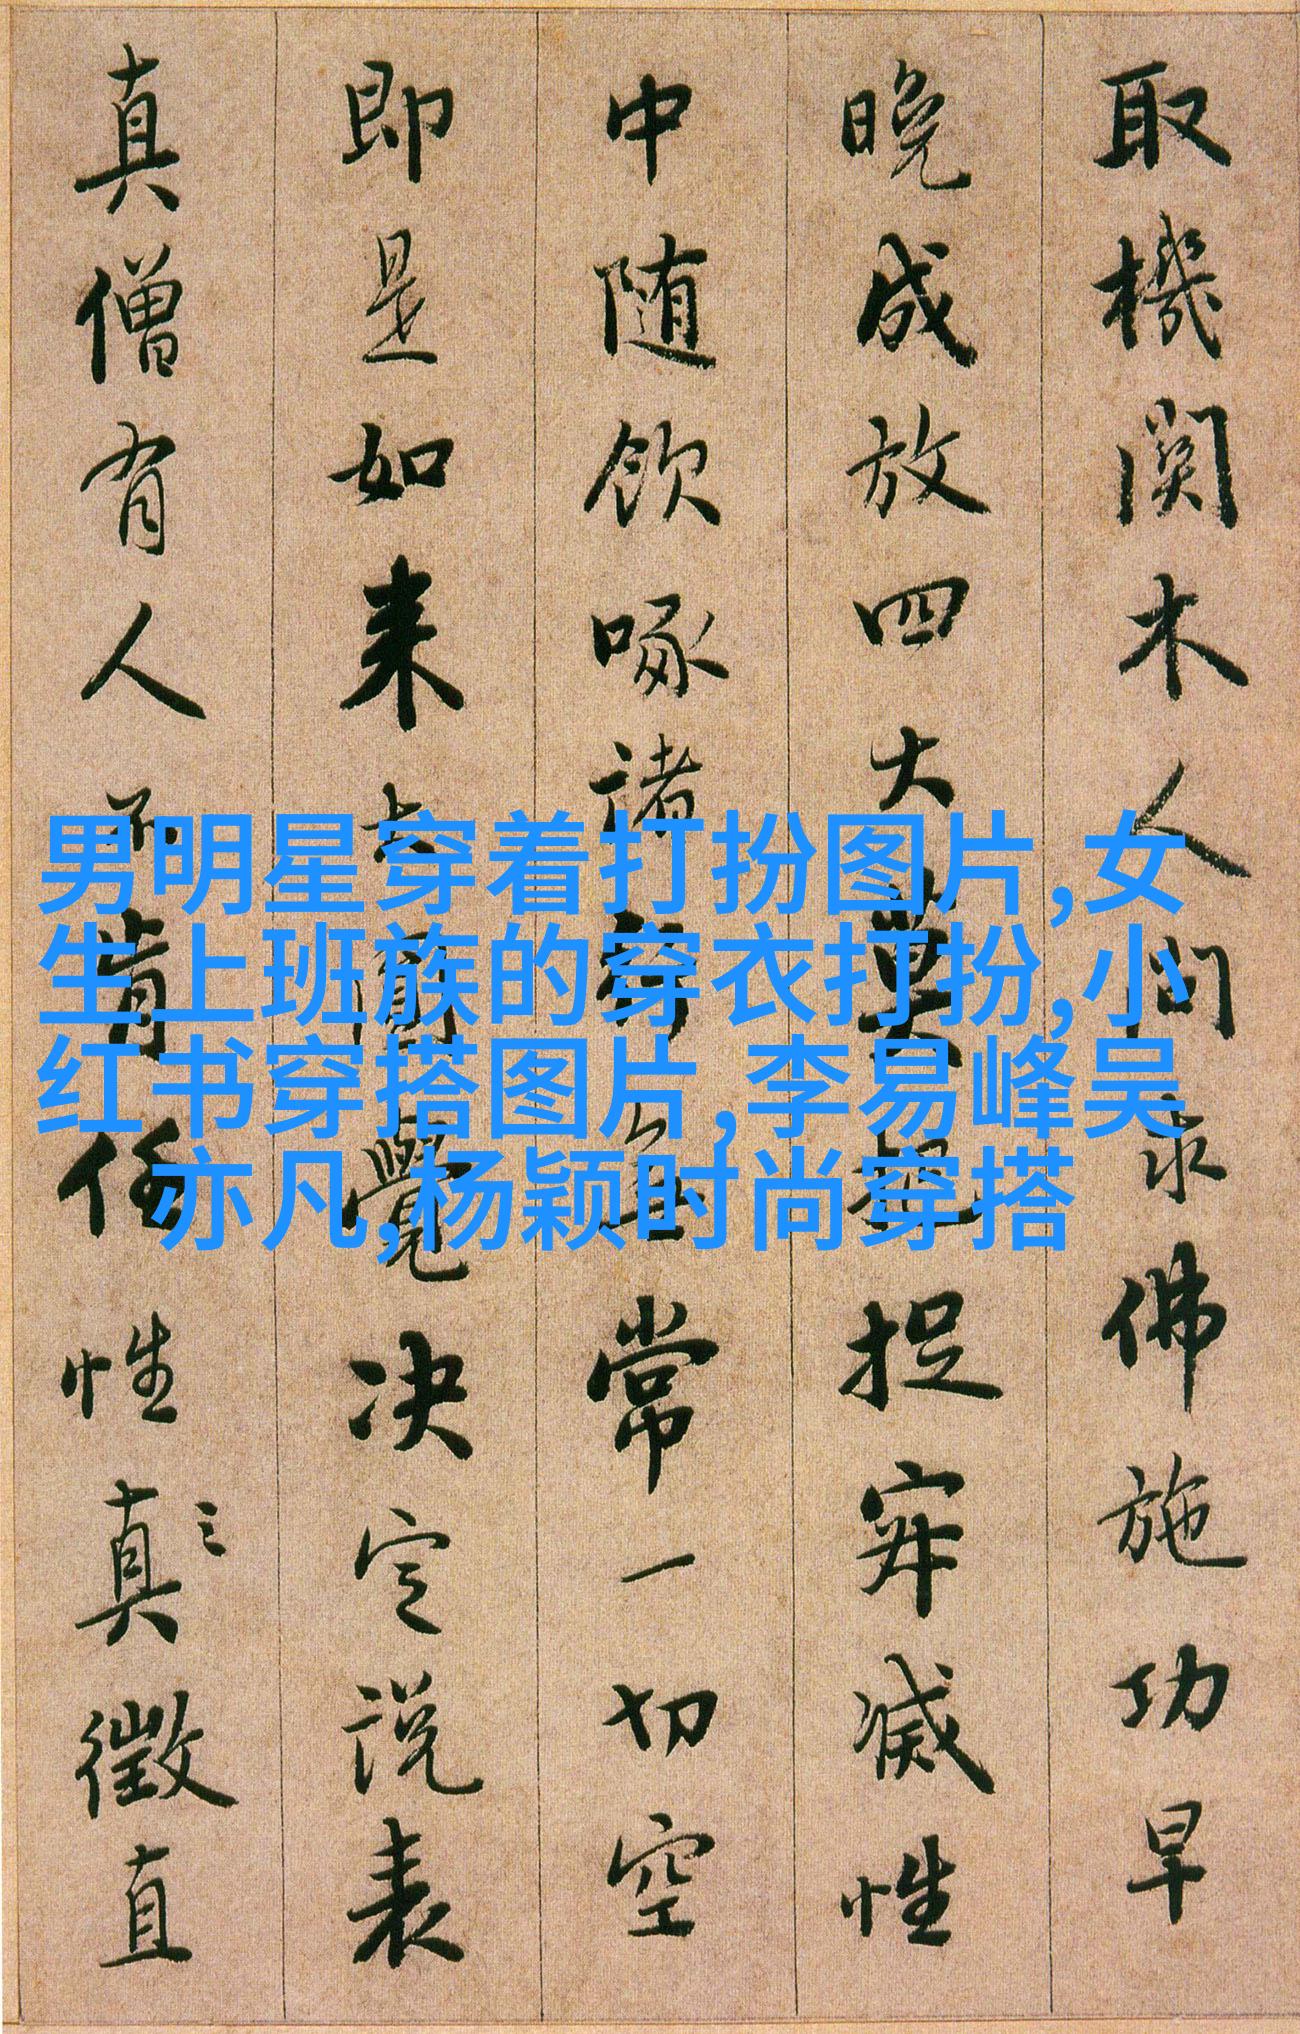 取機関木人問求佛施功早
晚成放四大莫把捉寂滅性
中随飲啄諸行無常一切空
即是如来大圓覺决定说表
真僧有人不肯任性真徵直
男明星穿着打扮图片,女
生上班族的穿衣打扮,小
红书穿搭图片,李易峰吴
亦凡,杨颖时尚穿搭